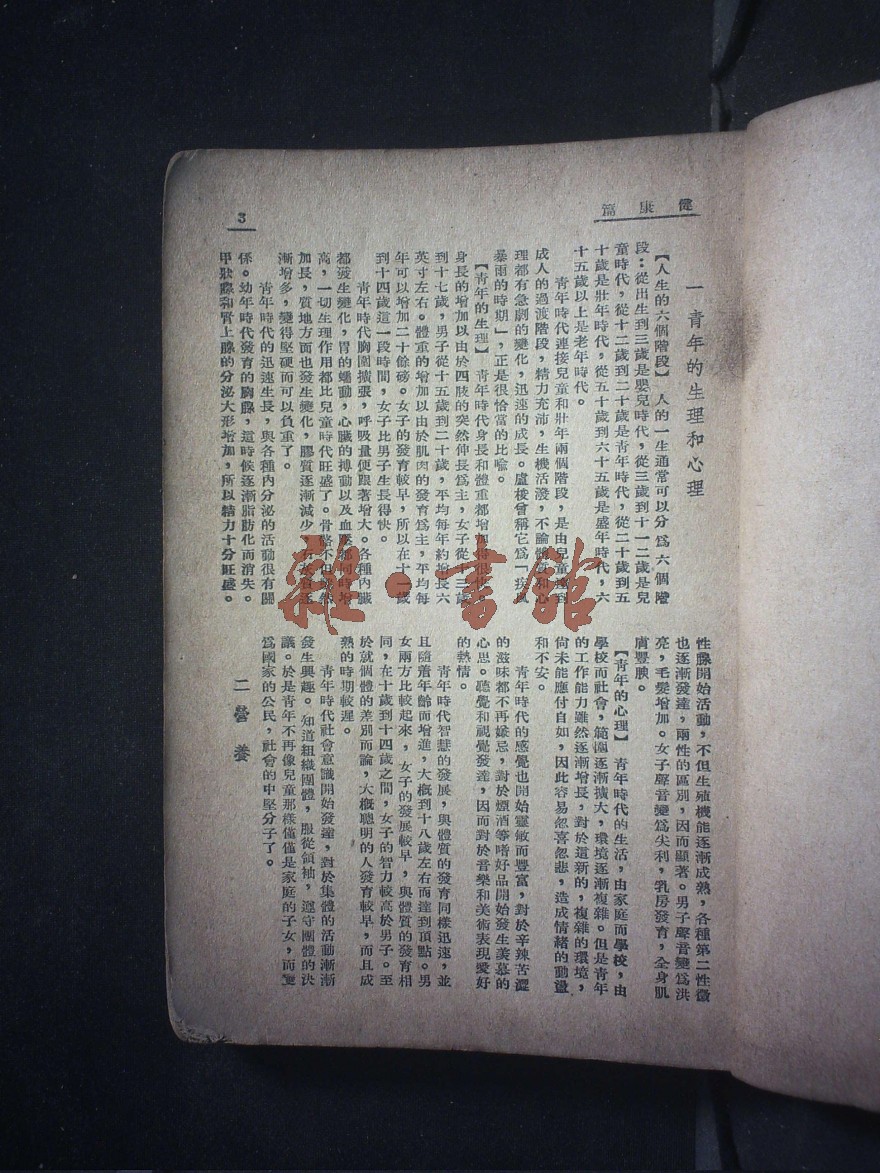 健康篇
3
一 青年的生理和心理
【人生的六個階段】 人的一生通常可以分爲六個階
段：從出生到三歲是嬰兒時代，從三歲到十一二歲是兒
童時代，從十二歲到二十歲是青年時代，從二十歲到五
十歲是壯年時代，從五十歲到六十五歲是盛年時代，六
十五歲以上是老年時代。
青年時代連接兒童和壯年兩個階段，是由兒童達到
成人的過渡階段，精力充沛，生機活潑，不論體質和心
理都有急劇的變化，迅速的成長。盧梭曾稱它爲「疾風
暴雨的時期」，正是很恰當的比喩。
【青年的生理】 青年時代身長和體重都增加得很快。
身長的增加以由於四肢的突然伸長爲主，女子從十三歲
到十七歲，男子從十五歲到二十歲，平均每年約增長六
英寸左右。體重的增加以由於肌肉的發育爲主，平均每
年可以增加二十餘磅。女子的發育較早，所以在十一歲
到十四歲這一段時間，女子比男子生長得快。
青年時代胸圍擴張，呼吸量便跟著增大。各種內臟
都發生變化，胃的蠕動，心臟的搏動以及血壓都同時增
高，一切生理作用都比兒童時代旺盛了。骨骼不但繼續
加長，質地方面也發生變化，膠質逐漸減少，石灰質逐
漸增多，變得堅硬而可以負重了。
青年時代的迅速生長，與各種內分泌的活動很有關
係。幼年時代發育的胸腺，這時候逐漸脂肪化而消失。
甲狀腺和腎上腺的分泌大形增加，所以精力十分旺盛。
性腺開始活動，不但生殖機能逐漸成熟，各種第二性徵
也逐漸發達，兩性的區別，因而顯著。男子聲音變爲洪
亮，毛髮增加。女子聲音變爲尖利，乳房發育，全身肌
膚豐腴。
【青年的心理】 青年時代的生活，由家庭而學校，由
學校而社會，範圍逐漸擴大，環境逐漸複雜。但是青年
的工作能力雖然逐漸增長，對於這新的，複雜的環境，
尙未能應付自如，因此容易忽喜忽悲，造成情緒的動盪
和不安。
青年時代的感覺也開始靈敏而豐富，對於辛辣苦澀
的滋味都不再嫌忌，對於煙酒等嗜好品開始發生羨慕的
心思。聽覺和視覺發達，因而對於音樂和美術表現愛好
的熱情。
青年時代智慧的發展，與體質的發育同樣迅速，並
且隨着年齡而增進，大概到十八歲左右而達到頂點。男
女兩方比較起來，女子的發展較早，與體質的發育相
同，在十歲到十四歲之間，女子的智力較高於男子。至
於就個體的差別而論，大概聰明的人發育較早，而且成
熟的時期較遲。
青年時代社會意識開始發達，對於集體的活動漸漸
發生興趣。知道組織團體，服從領袖，遵守團體的決
議。於是青年不再像兒童那樣僅僅是家庭的子女，而變
爲國家的公民，社會的中堅分子了。
二 營養
雜·書館